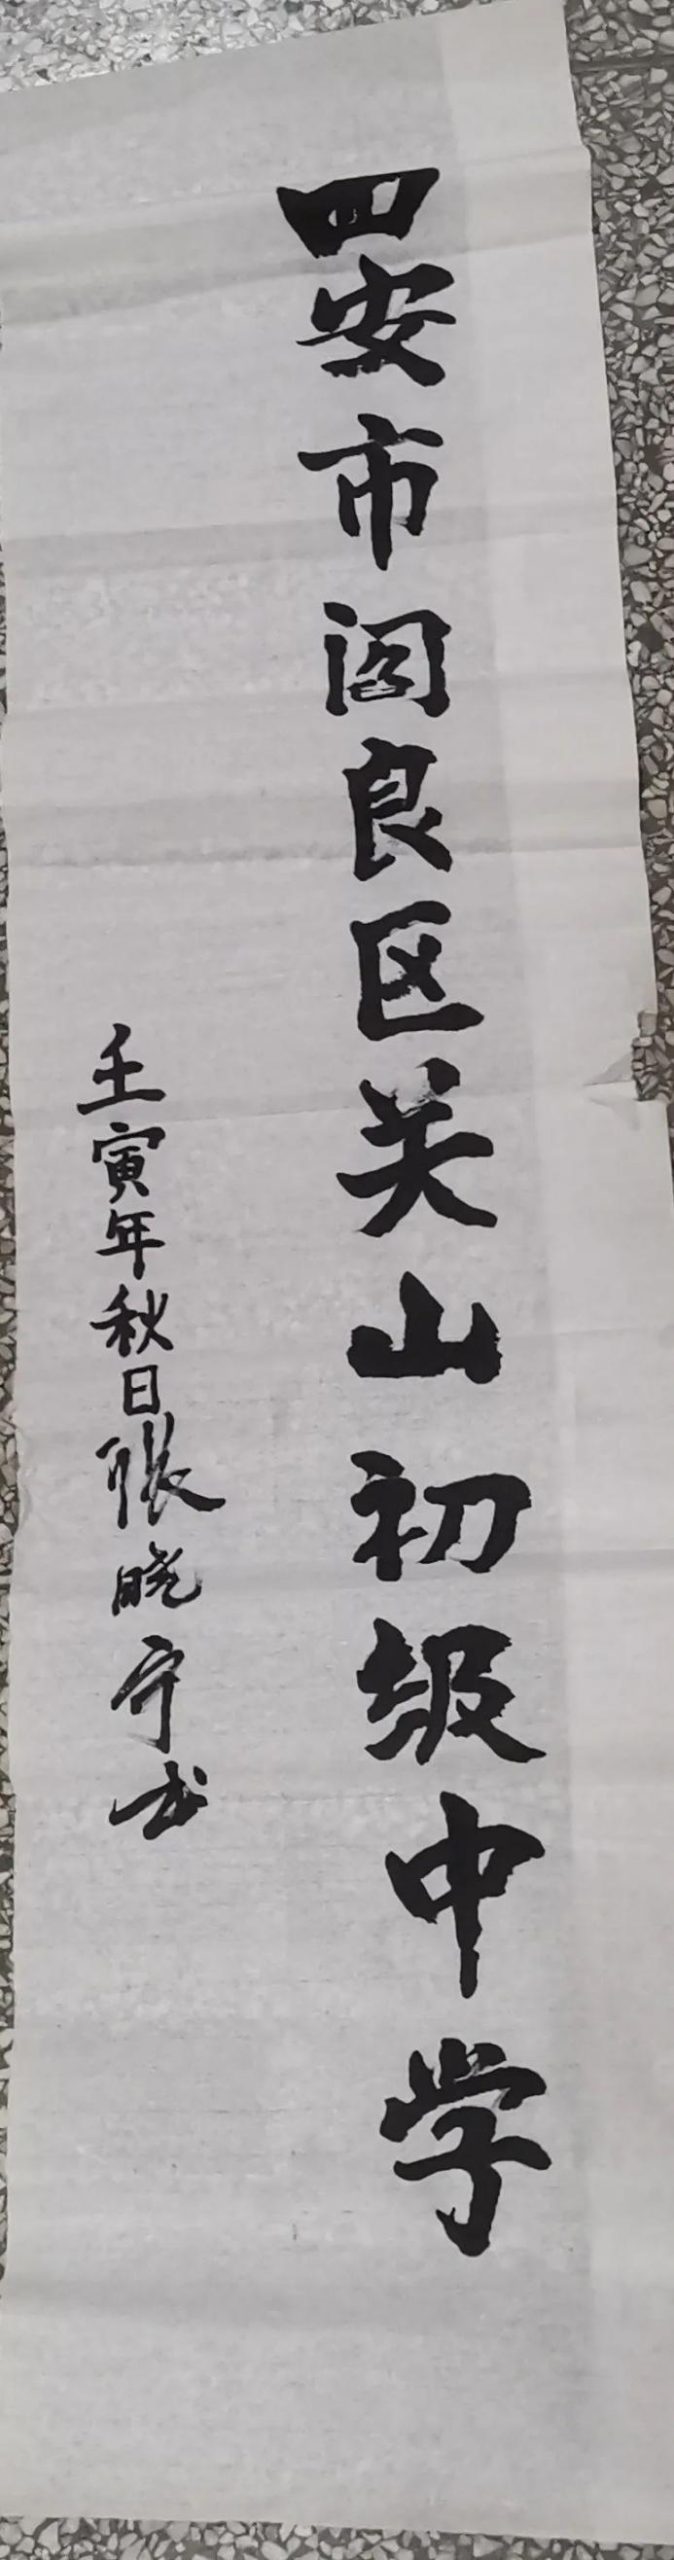 西安市阎良区关山初级中学
壬寅年秋日张晓宁书